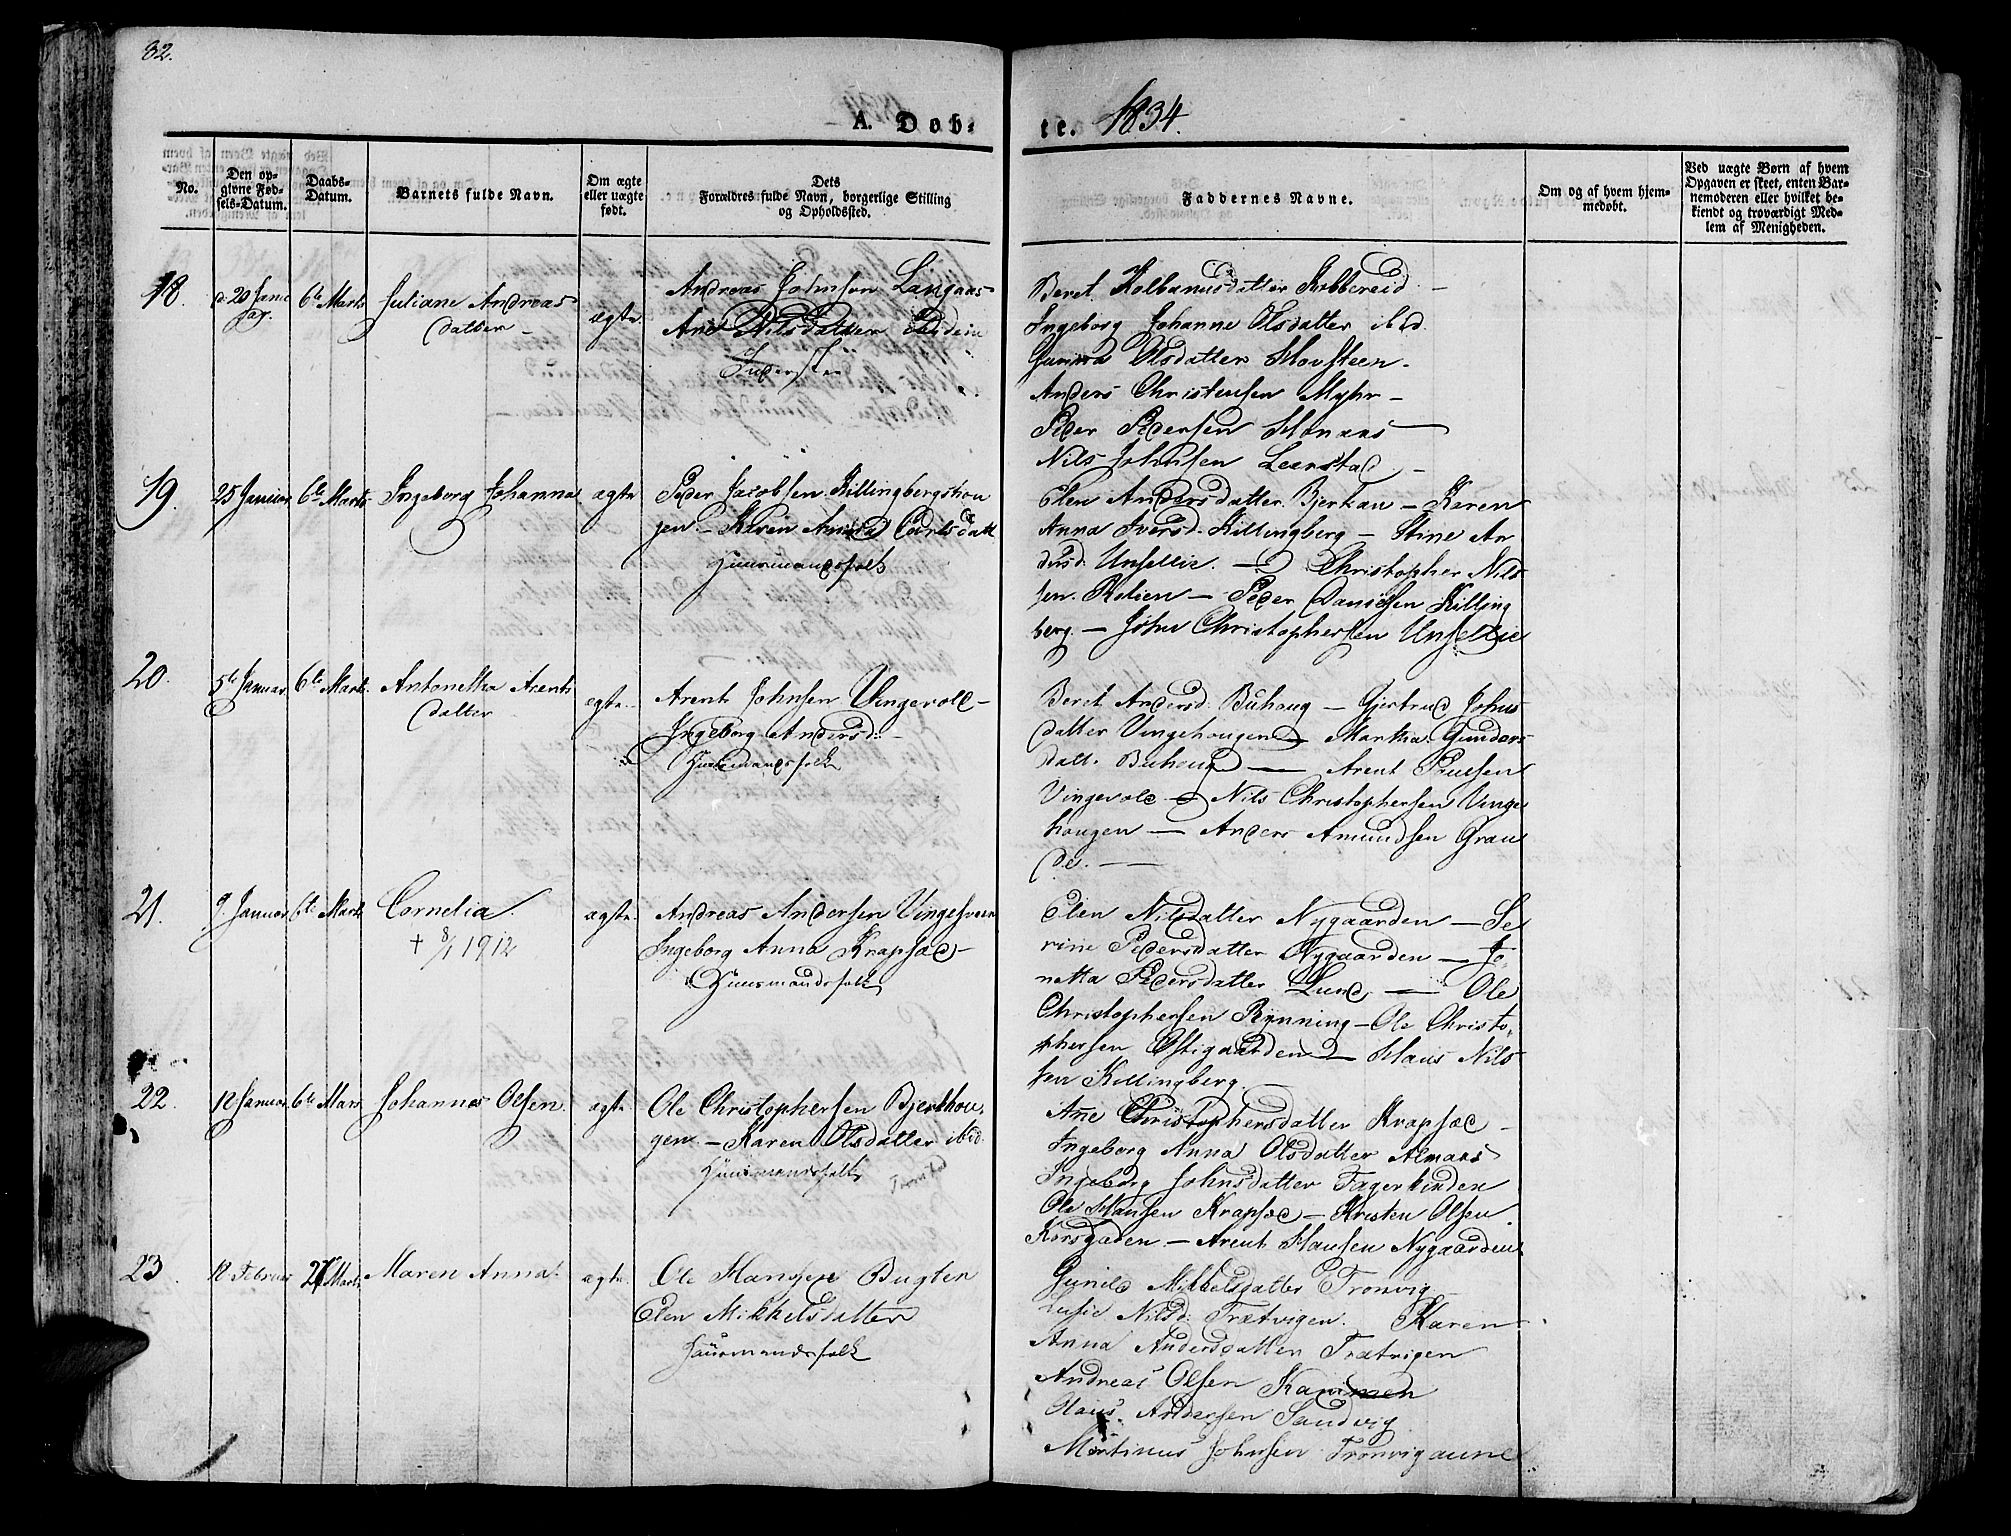 82.
A. Døb-
te. 1834.
No.
Den op-
givne Fød-
sels-Datum.
Daabs-
Datum.
Barnets fulde Navn.
Om ægte
eller uægte
født.
Dets
Forældres fulde Navn, borgerlige Stilling
og Opholdssted.
Faddernes Navne.
Om og af hvem hjem-
medøbt.
Ved uægte Børn af hvem
Opgaven er skeet, enten Bar-
nemoderen eller hvilket be-
kiendt og troværdigt Med-
lem af Menigheden.
18.
d. 20 Janu
ar.
6te Marts
Juliane Andreas
datter
ægte
Andreas Johnsen Langaas
Ane Nilsdatter
Beret Kolbanusdatter
Ingeborg Johanne Olsdatter ibid.
Olsdatter Hovsteen
Anders Christensen Myhr
Peder Pedersen
Nils Johnsen Leerstad
19.
25 Januar
6te Marts
Ingeborg Johanna
ægte
Peder Jacobsen Killingberghou
gen - Karen Anna Carlsdatt
Huusmandsfolk
Elen Andersdatter Bjerkan - Karen
Anna Iversd. Killingberg - Stine An
dersd. Unsellie. - Christopher Nils
sen. - Peder Danielsen Killing
berg. - John Christophersen Unsellie
20.
5te Januar
6te Marts
Antonetta Arents
datter
ægte
Arent Johnsen Vingevold
Ingeborg Andersd.
Huusmandsfolk
Beret Andersd. Buhaug - Gjertrud Johns
datter Vingehougen - Martha Gunders
datt. Buhaug - Arent Paulsen
Vingevold - Nils Christophersen Vinge
hougen - Anders Amundsen Grau
de.
21.
9. Januar
6te Marts
Cornelia.
† 8/1 1912
ægte
Andreas Andersen Vingesveen
Ingeborg Anna Krapsæd
Huusmandsfolk
Elen Nilsdatter Nygaarden - Se
rine Pedersdatter Nygaarden - Jo-
netta Pedersdatter Lund - Ole
Christophersen Rynning - Ole Christo-
phersen Østigaarden - Haus Nils
sen Killingberg.
22.
12 Januar
6te Mars
Johannes Olsen
ægte
Ole Christophersen Bjerkhou-
gen - Karen Olsdatter ibid.
Huusmandsfolk
Ane Christophersdatter Krapsæd
Ingeborg Anna Olsdatter Almaas
Ingeborg Johnsdatter Fagerhinden
Ole Hansen Krapsæd - Kristen Olsen
Korsgaden - Arent Hansen Nygaarden
23.
12 Februar
27 Marts
Maren Anna
ægte
Ole Hansen Bugten
Elen Mikkelsdatter
Huusmandsfolk
Gunild Mikkelsdatter Tronvig
Nilsd. Trætvigen. Karen
Anna Andersdatter Trætvigen
Andreas Olsen Kammen
Olaus Andersen Sandvig
Martinus Johnsen Tronvigaune